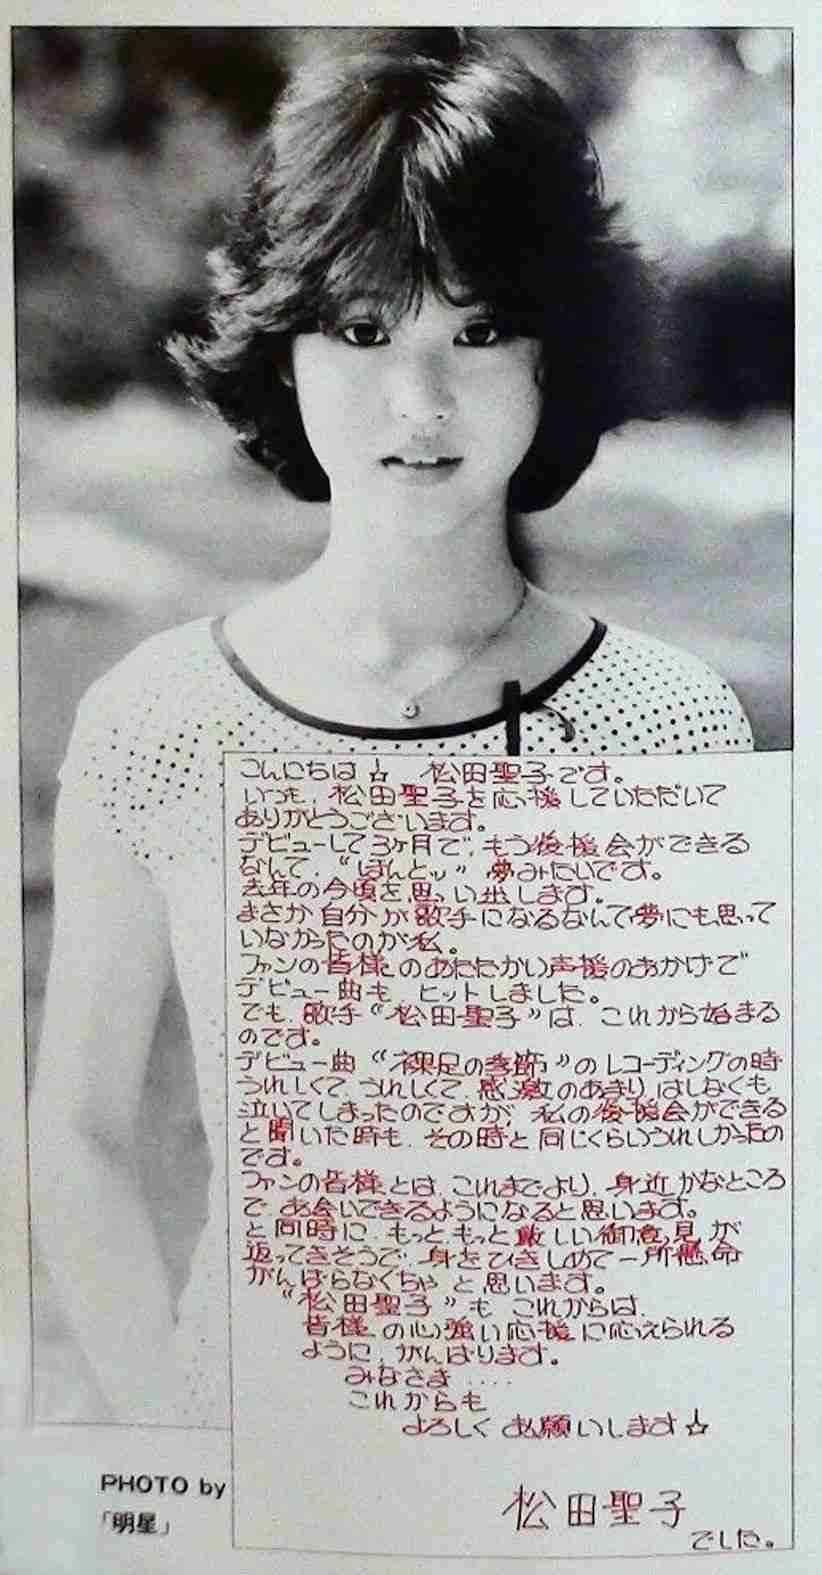 こんにちは☆ 松田聖子です。
いつも、松田聖子を応援していただいて
ありがとうございます。
デビューして3ヶ月で、もう後援会ができる
なんて、“ほんとッ” 夢みたいです。
去年の今頃を思い出します。
まさか自分が歌手になるなんて夢にも思って
いなかったのが私。
ファンの皆様のあたたかい声援のおかげで
デビュー曲も ヒットしました。
でも、歌手“松田聖子”は、これから始まる
のです。
デビュー曲 “裸足の季節”のレコーディングの時
うれしくて、うれしくて、感激のあまり、はしなくも
泣いてしまったのですが、私の後援会ができる
と聞いた時も、その時と同じくらいうれしかったの
です。
ファンの皆様とは、これまでより、身近かなところ
で お会いできるようになると思います。
と同時に、もっともっと厳しい御意見が
返ってきそうで、身をひきしめて一所懸命
がんばらなくちゃ と思います。
“松田聖子”も これからは、
皆様の心強い応援に応えられる
ように、がんばります。
みなさま ‥‥
これからも
よろしく お願いします☆
松田聖子
でした。
PHOTO by
「明星」